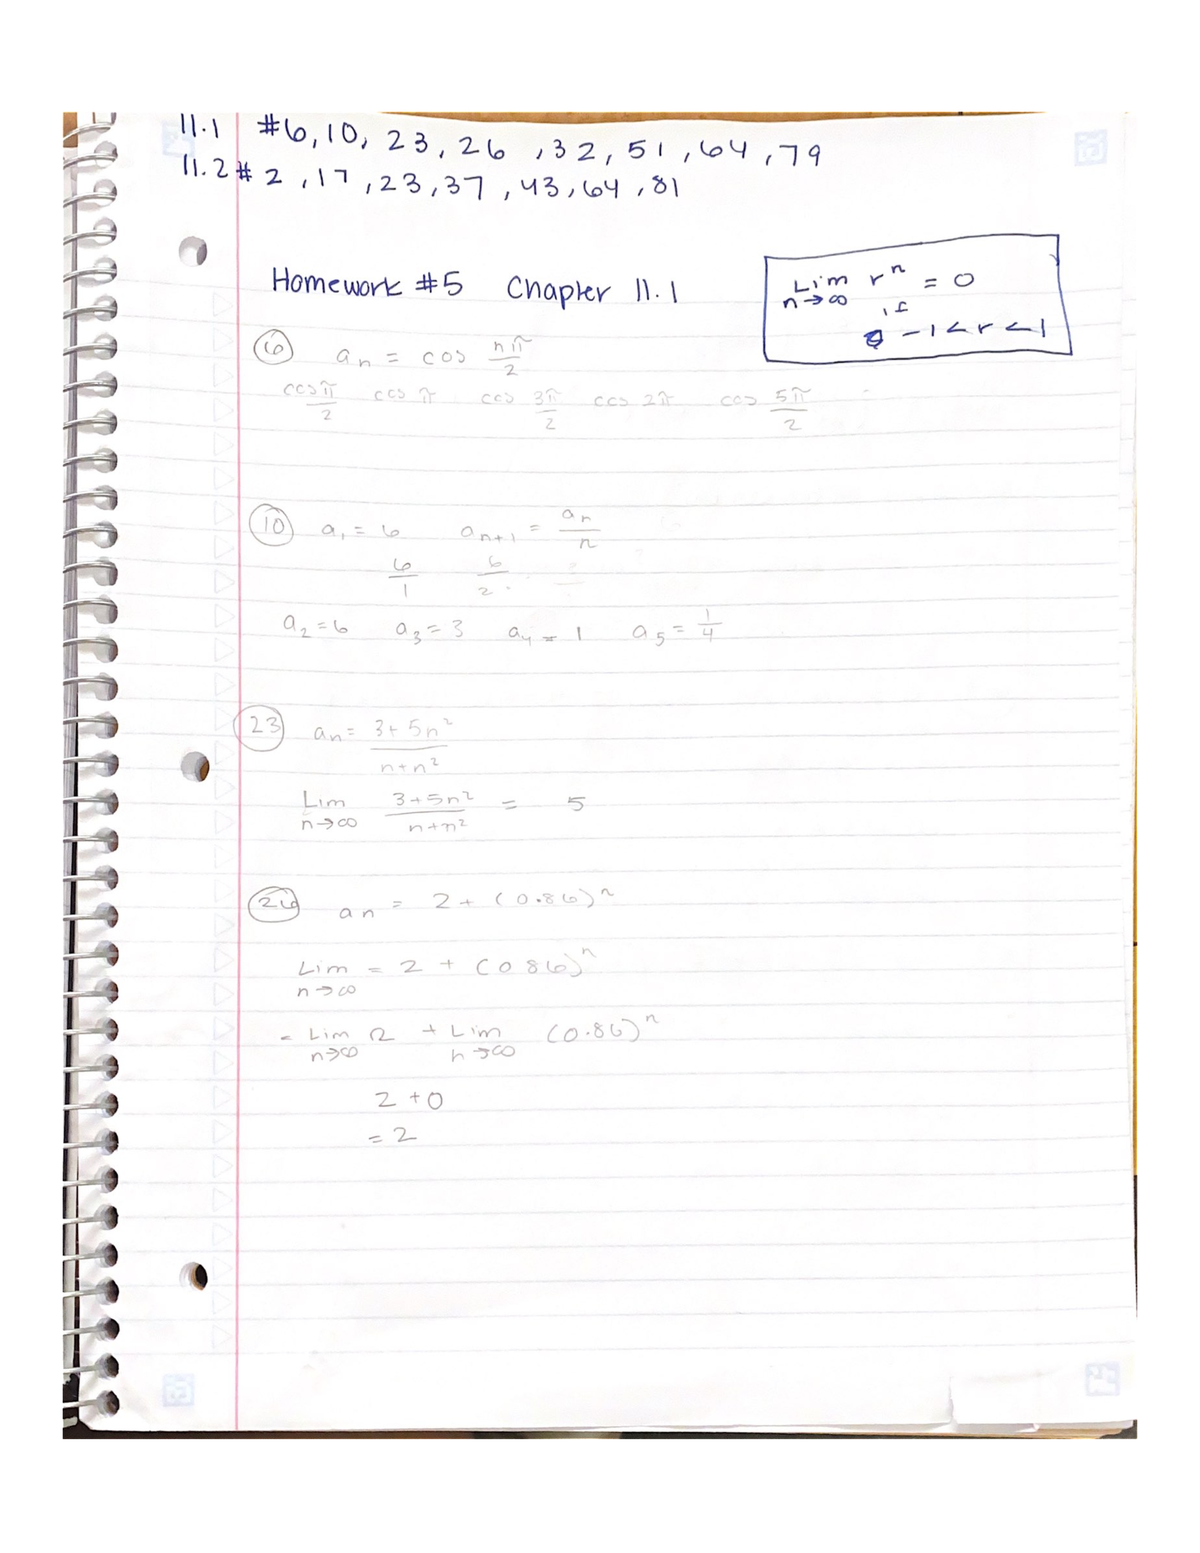 11.1 #6, 10, 23, 26, 32, 51, 64, 79
11.2 # 2, 17, 23, 37, 43, 64, 81
Homework #5 Chapter 11.1
Lim n→∞ r^n = 0
if
-1 < r < 1
6 an = cos nπ/2
cos π/2 cos π cos 3π/2 cos 2π cos 5π/2
10 a1 = 6 an+1 = an/n
6/1 6/2
a2 = 6 a3 = 3 a4 = 1 a5 = 1/4
23 an = 3+5n²/n+n²
Lim n→∞ 3+5n²/n+n² = 5
26 an = 2 + (0.86)^n
Lim n→∞ = 2 + (0.86)^n
= Lim n→∞ 2 + Lim n→∞ (0.86)^n
2 + 0
= 2